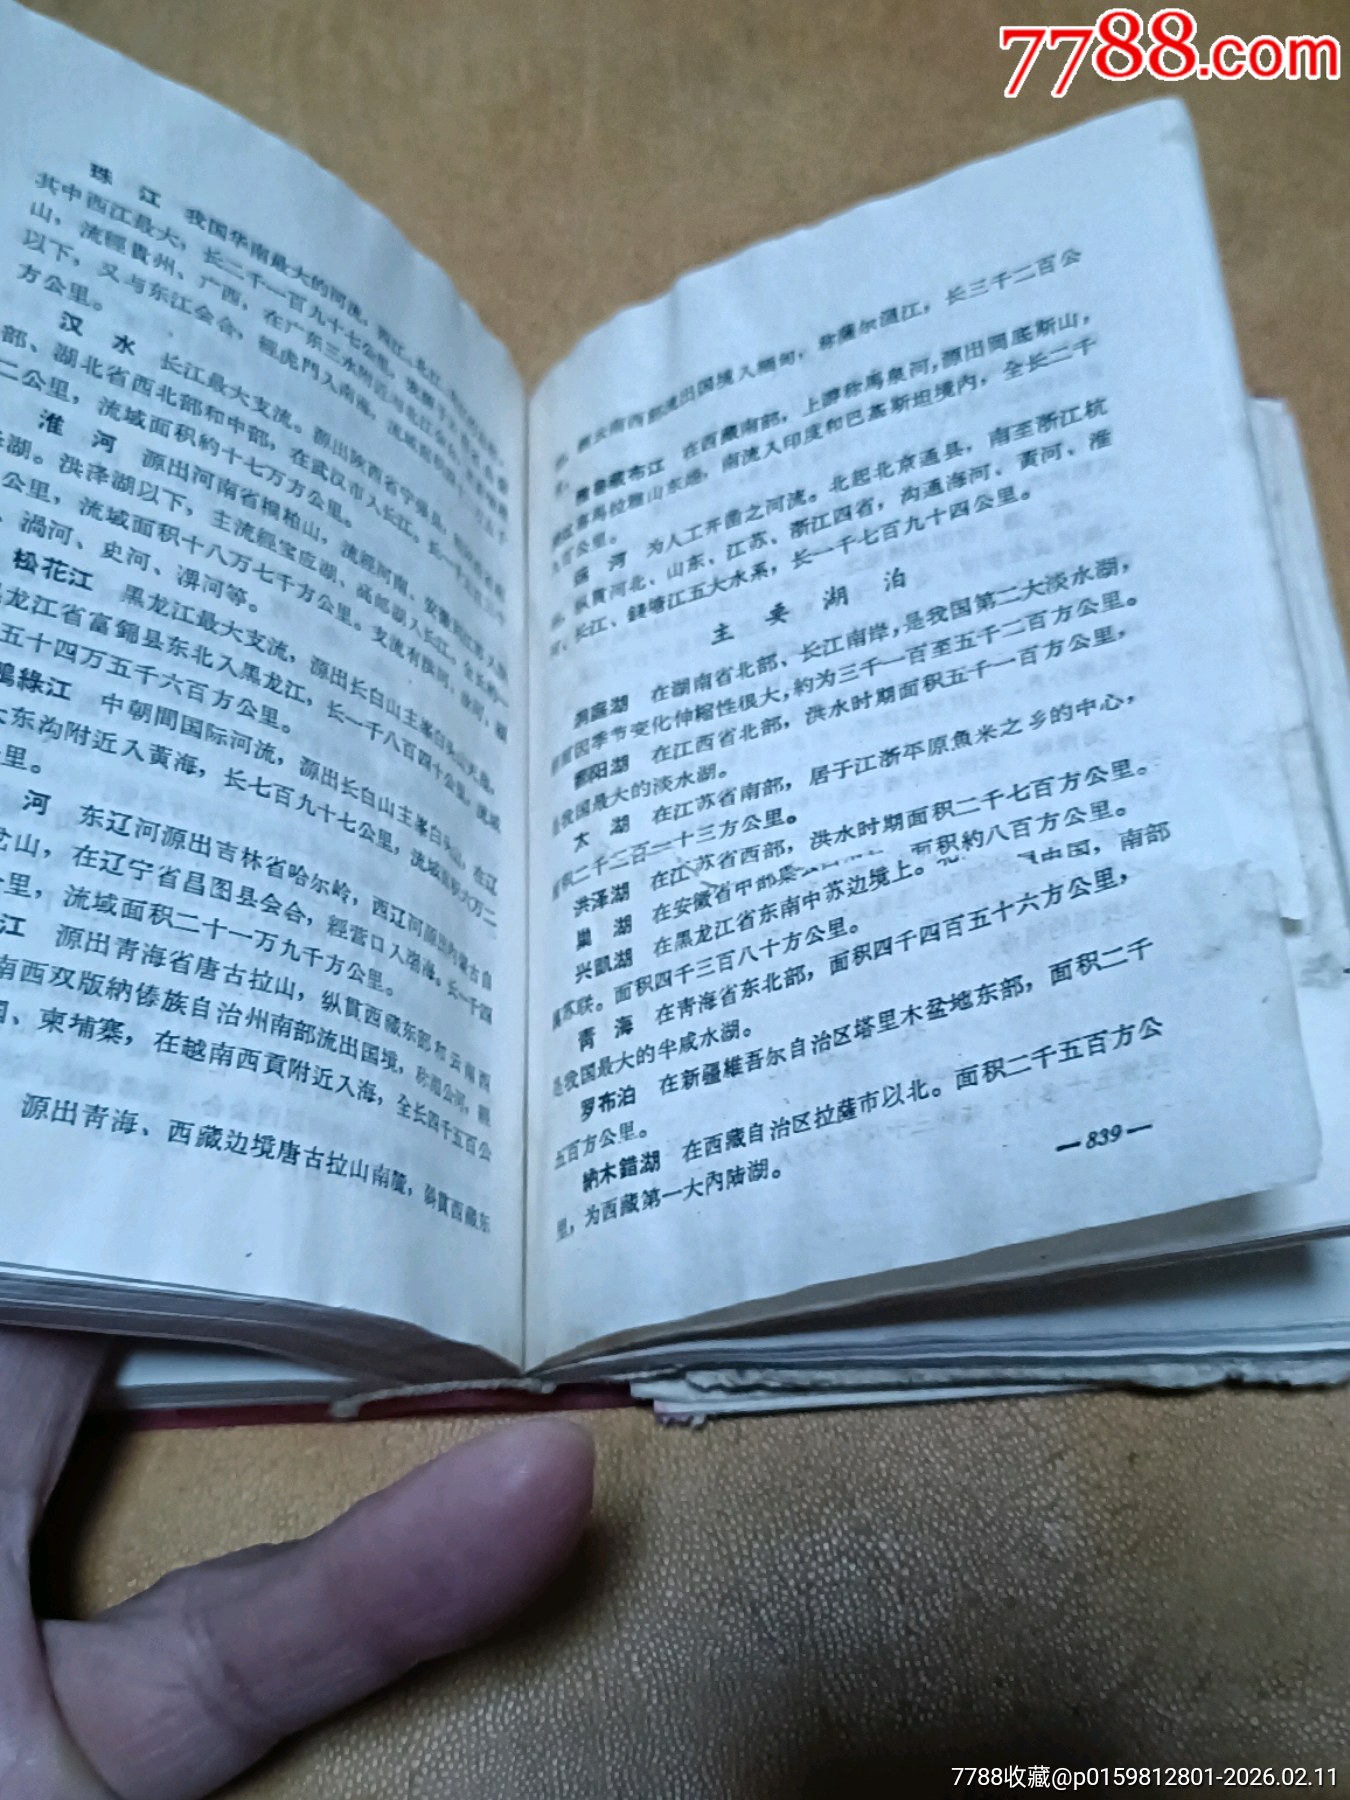 7788.com
珠 江 我国华南最大的河流,
其中西江最大,长二千一百九十七公里,
山,流經貴州、广西,在广东三水附近与北江
以下,又与东江会合,經虎門入南海,
方公里。
汉 水 长江最大支流。源出陕西省宁强县,
部、湖北省西北部和中部,在武汉市入长江。长一千
二公里,流域面积約十七万方公里。
淮 河 源出河南省桐柏山,流經河南、安徽
湖。洪泽湖以下,主流經宝应湖、高邮湖入长江。全长約一
公里,流域面积十八万七千方公里。支流有
、渦河、史河、淠河等。
松花江 黑龙江最大支流,源出长白山主峯白头山天池,
龙江省富錦县东北入黑龙江,长一千八百四十公里,流域
五十四万五千六百方公里。
鴨綠江 中朝間国际河流,源出长白山主峯白头山,在辽
大东沟附近入黄海,长七百九十七公里,流域面积六万二
里。
河 东辽河源出吉林省哈尔岭,西辽河源出内蒙古自
岔山,在辽宁省昌图县会合,經营口入渤海。长一千四
里,流域面积二十一万九千方公里。
江 源出青海省唐古拉山,纵貫西藏东部和云南西
南西双版納傣族自治州南部流出国境,称湄公河,經
、柬埔寨,在越南西貢附近入海,全长四千五百公
源出青海、西藏边境唐古拉山南麓,斜貫西藏东
云南西部流出国境入緬甸,称薩尔温江,长三千二百公
雅魯藏布江 在西藏南部,上游称馬泉河,源出岡底斯山,
喜馬拉雅山东端,南流入印度和巴基斯坦境內,全长二千
九百公里。
运 河 为人工开凿之河流。北起北京通县,南至浙江杭
纵貫河北、山东、江苏、浙江四省,沟通海河、黄河、淮
河、长江、錢塘江五大水系,长一千七百九十四公里。
主 要 湖 泊
洞庭湖 在湖南省北部、长江南岸,是我国第二大淡水湖,
因季节变化伸縮性很大,約为三千一百至五千二百方公里。
鄱阳湖 在江西省北部,洪水时期面积五千一百方公里,
是我国最大的淡水湖。
太 湖 在江苏省南部,居于江浙平原魚米之乡的中心,
面积二千二百一十三方公里。
洪泽湖 在江苏省西部,洪水时期面积二千七百方公里。
巢 湖 在安徽省中部巢 面积約八百方公里。
兴凱湖 在黑龙江省东南中苏边境上。北 中国,南部
属苏联。面积四千三百八十方公里。
青 海 在青海省东北部,面积四千四百五十六方公里,
是我国最大的半咸水湖。
罗布泊 在新疆維吾尔自治区塔里木盆地东部,面积二千
五百方公里。
納木錯湖 在西藏自治区拉薩市以北。面积二千五百方公
里,为西藏第一大內陆湖。
—839—
7788收藏@p0159812801-2026.02.11